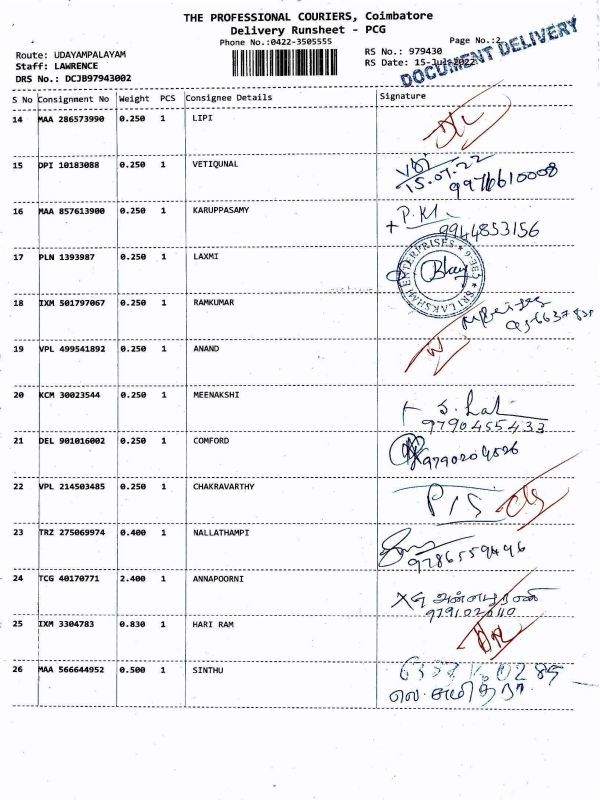 THE PROFESSIONAL COURIERS, Coimbatore
Delivery Runsheet - PCG
Phone No.:0422-3505555
Page No.:2
DOCUMENT DELIVERY
Route: UDAYAMPALAYAM
RS No.: 979430
Staff: LAWRENCE
RS Date: 15-Jul-2022
DRS No.: DCJB97943002
S No Consignment No Weight PCS Consignee Details Signature
14 MAA 286573990 0.250 1 LIPI
15 DPI 10183088 0.250 1 VETIQUNAL
15.07.22
16 MAA 857613900 0.250 1 KARUPPASAMY
9944853156
17 PLN 1393987 0.250 1 LAXMI
SRI LAKSHMI ENTERPRISES ★ CBE-6 ★
18 IXM 501797067 0.250 1 RAMKUMAR
19 VPL 499541892 0.250 1 ANAND
20 KCM 30023544 0.250 1 MEENAKSHI
9790455433
21 DEL 901016002 0.250 1 COMFORD
9790204526
22 VPL 214503485 0.250 1 CHAKRAVARTHY
P/S
23 TRZ 275069974 0.400 1 NALLATHAMPI
9786559496
24 TCG 40170771 2.400 1 ANNAPOORNI
25 IXM 3304783 0.830 1 HARI RAM
26 MAA 566644952 0.500 1 SINTHU